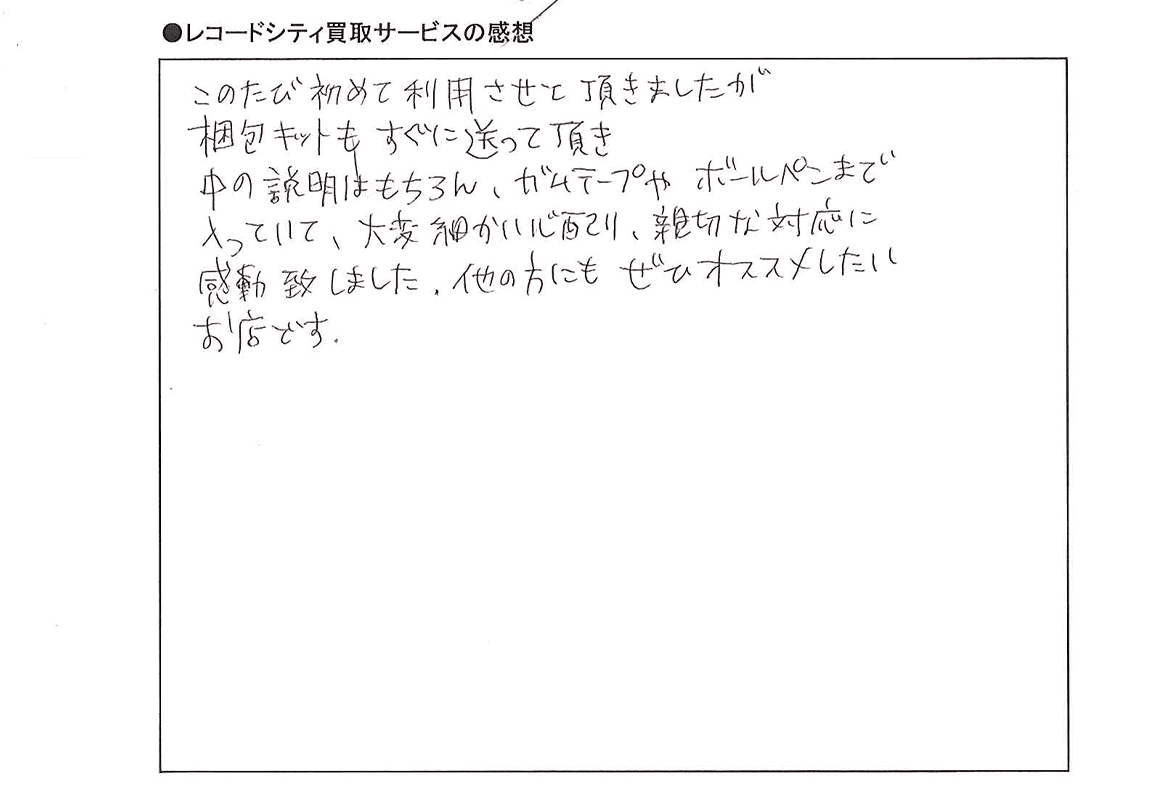 ●レコードシティ買取サービスの感想
このたび初めて利用させて頂きましたが
梱包キットもすぐに送って頂き
中の説明はもちろん、ガムテープや ボールペンまで
入っていて、大変細かい心配り、親切な対応に
感動致しました。他の方にも ぜひオススメしたい
お店です.